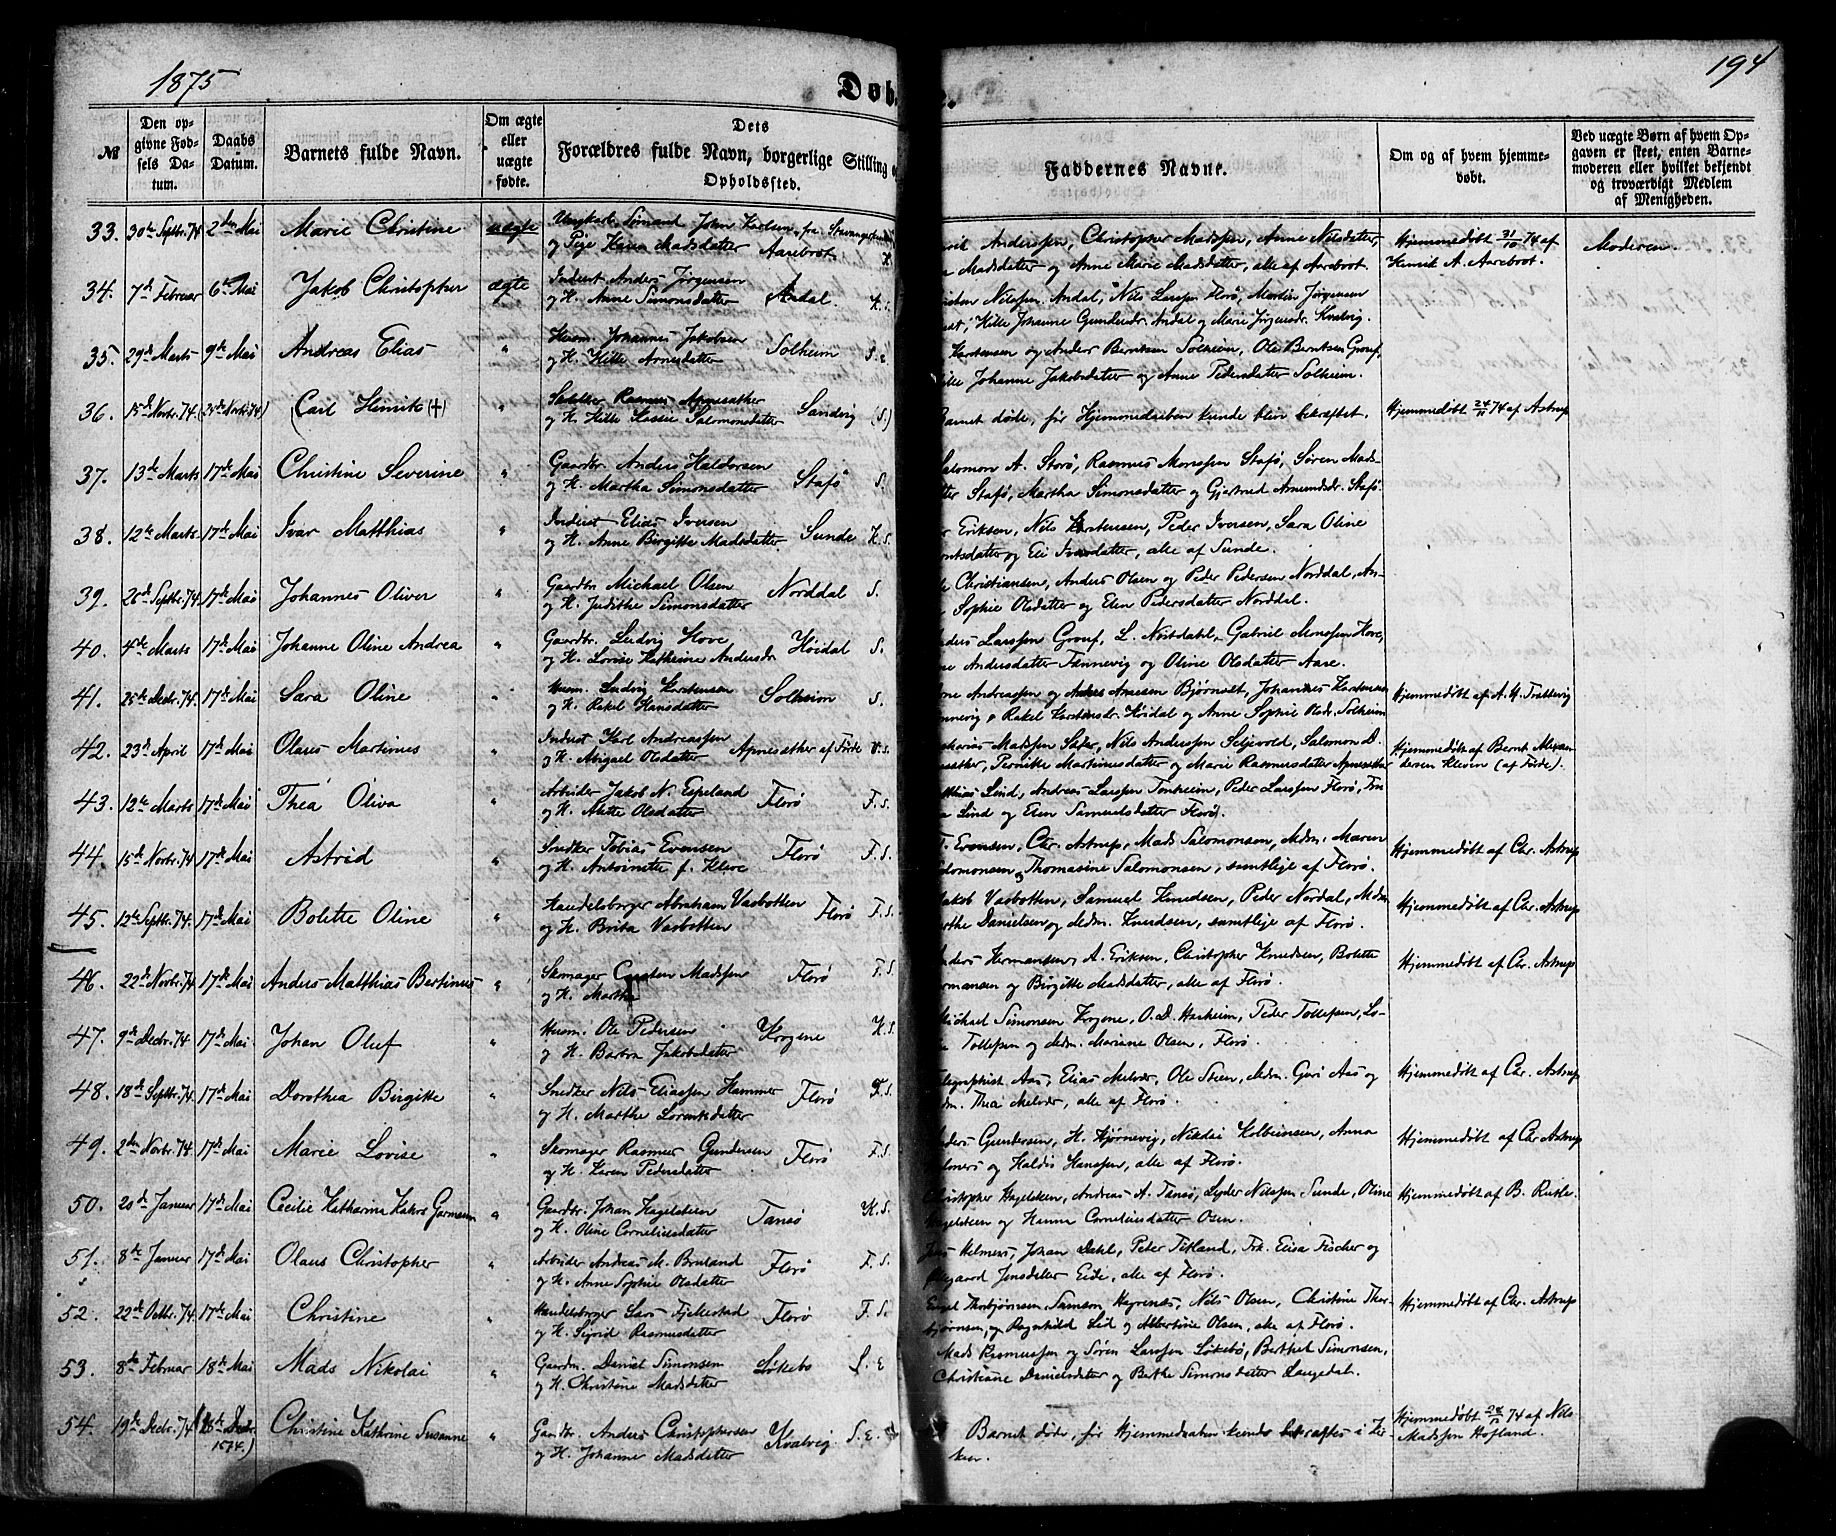 1875
194
Døb
№
Den opgivne Fødsels Datum.
Daabs Datum.
Barnets fulde Navn.
Om ægte eller uægte fødte.
Dets Forældres fulde Navn, borgerlige Stilling
Opholdssted.
Faddernes Navne.
Om og af hvem hjemmedøbt.
Ved uægte Børn af hvem Opgaven er skeet, enten Barnemoderen eller hvilket bekjendt og troværdigt Medlem af Menigheden.
33. 30te Septbr. 74 2den Mai Marie Christine uægte Ungkarl Sømand John Karlsen, fra Stavanger
og Pige Karen Madsdatter Aarebrot
Andersen, Christopher Madssen, Anne Nilsdatter,
Madsdatter og Anne Marie Madsdatter, alle af Aarebrot.
Hjemmedøbt 31/10 74 af
Henrik A. Aarebrot. Moderen.
34. 7de Februar 6te Mai Jakob Christopher ægte Inderst Anders Jørgensen
og H. Anne Simonsdatter Andal. K. S.
Nilssen Andal, Nils Larssen Florø, Martin Jørgensen
Hille Johanne Gundersdr. Andal og Marie Jørgensdr. Kvalvig.
35. 29de Marts 9de Mai Andreas Elias " Husm. Johannes Jakobsen
og H. Hille Arnesdatter Solheim S. E.
Karstensen og Anders Berntsen Solheim, Ole Berntsen Grouf,
Johanne Jakobsdatter og Anne Pedersdatter Solheim.
36. 15de Novbr. 74. (24de Novbr. 74) (Carl Henrik (+) " Rasmus Apnesæther
og H. Hille Salomonsdatter Sandvig (S.)
Barnet døde, før Hjemmedaaben kunde blive bekræftet. Hjemmedøbt 24/11 74 af Astrup
37. 13de Marts 17de Mai Christine Severine " Gaardbr. Anders Haldorsen
og H. Martha Simonsdatter Stafø S.
Salomon A. Storø, Rasmus Monssen Stafø, Søren Mads-
Stafø, Martha Simonsdatter og Gjertrud Amundsdr. Stafø.
38. 12te Marts 17de Mai Ivar Matthias " Inderst Elias Iversen
og H. Anne Birgitte Madsdatter. Sunde K. S.
Eriksen, Nils Karstensen, Peder Iversen, Sara Oline
og Eli Iversdatter, alle af Sunde.
39. 26de Septbr. 74. 17de Mai Johannes Oliver " Gaardbr. Michael Olsen
og H. Judithe Simonsdatter Norddal S.
Christiansen, Anders Olsen og Peder Pedersen Norddal, An-
Sophie Olsdatter og Elen Pedersdatter Norddal.
40. 4de Marts 17de Mai Johanne Oline Andrea " Gaardbr. Ludvig Hove
og H. Lovise Kathrine Andersdr. Høidal S.
Larssen Grouf, L. Nordahl, Gabriel Monssen Hove,
Andersdatter Tønnevig og Oline Olsdatter Aare.
41. 25de Decbr. 74. 17de Mai Sara Oline " Husm. Ludvig Karstensen
og H. Rakel Hansdatter Solheim S.
Andreassen og Anders Arnesen Bjørnset, Johannes Karstensen
og Rakel Karstensdr. Høidal og Anne Sophie Olsdr. Solheim
Hjemmedøbt af A. H. Trættevig
42. 23de April 17de Mai Olaus Martinus " Inderst Karl Andreassen
og H. Abigael Olsdatter Apnesæther af Førde V. S.
Madssen Sæter, Nils Anderssen Seljevold, Salomon D.
Pernille Martinusdatter og Marie Rasmusdatter Apnesæther
Hjemmedøbt af Bernt Alexan-
dersen Kleven (af Førde).
43. 12te Marts 17de Mai Thea Oliva " Arbeider Jakob N. Espeland
og H. Alette Olsdatter Florø F. S.
Lind, Andreas Larssen Tonheim, Peder Larssen Florø, Fru
Lind og Elen Samuelsdatter Florø.
44. 15de Novbr. 74 17de Mai Astrid " Snedker Tobias Evensen
og H. Antoinette f. Kleve Florø F. S.
T. Evensen, Chr. Astrup, Mads Salomonsen, Mdm. Maren
Salomonsen, Thomasine Salomonsen, samtlige af Florø.
Hjemmedøbt af Chr. Astrup
45. 12te Septbr. 74. 17de Mai Bolette Oline " Handelsborger Abraham Vasbotten
og H. Brita Vasbotten Florø F. S.
Jakob Vasbotten, Samuel Knudsen, Peder Nordal, Mdm.
Danielsen og Mdm. Knudsen, samtlige af Florø.
Hjemmedøbt af Chr. Astrup
46. 22de Novbr. 74 17de Mai Anders Matthias Bertinus " Skomager Carsten Madssen
og H. Martha Florø F. S.
Anders Hermansen, A. Eriksen, Christopher Knudsen, Bolette
Hermansen og Birgitte Madsdatter, alle af Florø.
Hjemmedøbt af Chr. Astrup
47. 9de Decbr. 74. 17de Mai. Johan Oluf " Husm. Ole Pedersen
og H. Barbra Jakobsdatter Krogene K. S.
Michael Simonsen Krogene, O. D. Hasheim, Peder Tollefsen, Lo-
Tollefsen og Mdm. Mariane Olsen, Florø.
48. 18de Septbr. 74. 17de Mai Dorothea Birgitte " Snedker Nils Eliassen Hammer
og H. Marthe Lorentsdatter Florø F. S.
Telegraphist Aas, Elias Melvær, Ole Steen, Mdm. Guri Aas og
Mdm. Thea Melvær, alle af Florø.
Hjemmedøbt af Chr. Astrup
49. 2den Novbr. 74. 17de Mai Marie Lovise " Skomager Rasmus Gundersen
og H. Karen Pedersdatter Florø F. S.
Anders Gundersen, H. Hjørnevig, Nikolai Kolbeinsen, Anna
Helmers og Haldis Hanssen, alle af Florø.
Hjemmedøbt af Chr. Astrup
50. 20de Januar 17de Mai Cecilie Katharina Kahrs Garmann " Gaardbr. Johan Hagelsteen
og H. Oline Corneliusdatter Tansø K. S.
Christopher Hagelsteen, Andreas A. Tansø, Lyder Nilssen Sunde, Oline
Hagelsteen og Hanna Corneliusdatter Osen.
Hjemmedøbt af B. Rutle.
51. 8de Januar 17de Mai Olaus Christopher " Arbeider Andreas M. Bruland
og H. Anne Sophie Olsdatter Florø F. S.
Jens Helmers, Johan Dahl, Peter Titland, Frk. Elisa Fischer og
Jensdatter Eide, alle af Florø.
52. 22de Octbr. 74. 17de Mai Christine " Handelsborger Lars Fjelkestad
og H. Sigrid Rasmusdatter Florø F. S.
Engel Thorbjørnsen, Samson Høyrenes, Nils Olsen, Christine Thor-
bjørnsen, og Ragnhild Lid og Albertine Olsen, alle af Florø.
Hjemmedøbt af Chr. Astrup
53. 8de Februar 18de Mai Mads Nikolai " Gaardm. Daniel Simonsen
og H. Christine Madsdatter Løkebø S. E
Mads Rasmussen og Søren Larssen Løkebø, Berthel Simonsen,
Christiane Danielsdatter og Berthe Simonsdatter Langedal.
54. 19de Decbr. 74 (26de Decbr. 1874.) Christine Kathrine Susanne " Gaardbr. Anders Christophersen
og H. Johanne Madsdatter Kvalvig S. E.
Barnet døde, før Hjemmedaaben kunde bekræftes i Kir-
ken.
Hjemmedøbt 26/12 74 af Nils
Madssen Hofland.